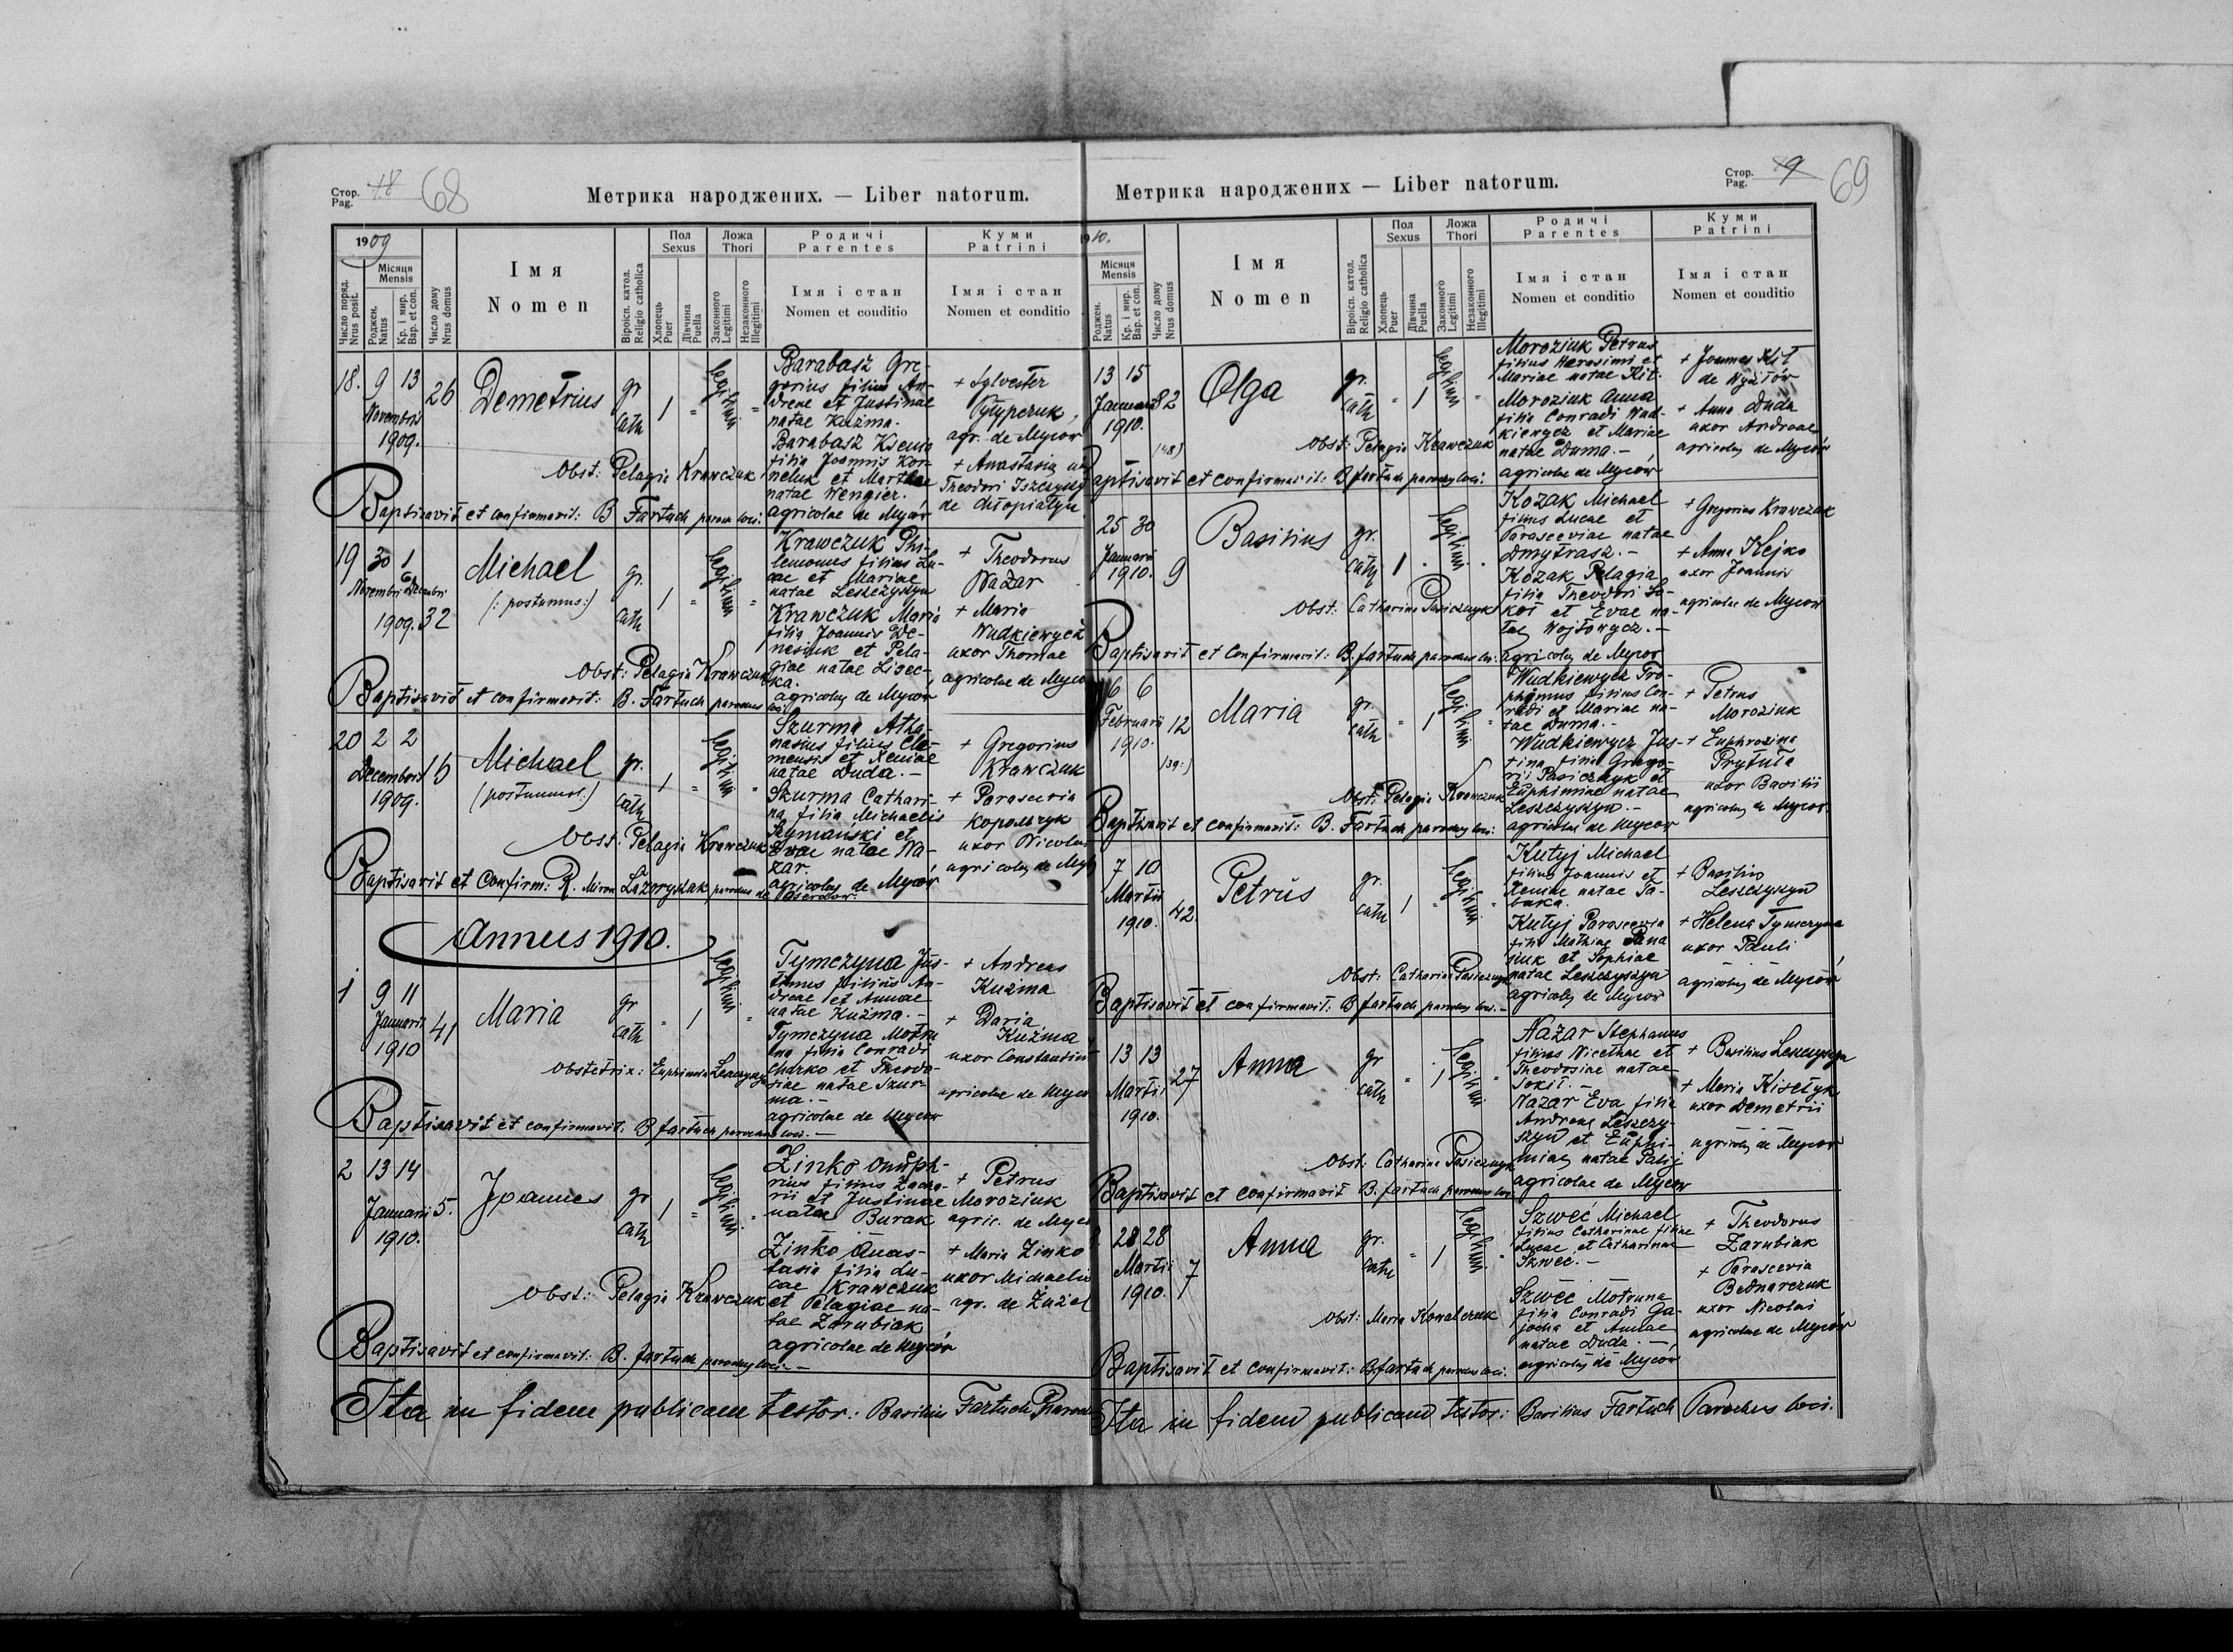 Стор.
Pag.
68
Метрика народжених. — Liber natorum.
1909
Число поряд.
Nrus posit.
Місяця
Mensis
Роджен.
Natus
Кр. і мир.
Bap. et con.
Число дому
Nrus domus
Імя
Nomen
Віроісп. катол.
Religio catholica
Пол
Sexus
Хлопець
Puer
Дівчина
Puella
Ложа
Thori
Законного
Legitimi
Незаконного
Illegitimi
Родичі
Parentes
Імя і стан
Nomen et conditio
Куми
Patrini
Імя і стан
Nomen et conditio
18. 9 13
Novembris
1909.
26
Demetrius
gr
cath
1
legitimi
Barabasz Gre-
gorius filius An-
dreae et Justinae
natae Kuźma.
Barabasz Ksenia
filia Joannis Kor-
neluk et Marthae
natae Wengier.
agricolae de Myców
+ Sylvester
agr. de Myców
+ Anastasia
Theodori
de Chłopiatyn
Obst: Pelagia Krawczuk
Baptisavit et confirmavit: B Fartuch paroch loci.
19 30 1
Novembri Decembri
1909. 32
Michael
(: postumus:)
gr.
cath
1
legitimi
Krawczuk Phi-
lemonus filius Lu-
cae et Mariae
natae Leszczyszyn
Krawczuk Maria
filia Joannis De-
nesiuk et Pela-
giae natae
agricolae de Myców
+ Theodorus
Nazar
+ Maria
Wudkiewycz
uxor Thomae
agricolae de Myców
Obst: Pelagia Krawczuk
Baptisavit et confirmavit: B. Fartuch parochus loci
20 2 2
Decembris
1909.
15
Michael
gr.
cath
1
legitimi
Szurma Atha-
nasius filius Cle-
mensis et Xeniae
natae Duda. -
Szurma Cathari-
na filia Michaelis
Szymanski et
Evae natae Na-
zar.
agricolae de Myców
+ Gregorius
Krawczuk
+ Parascevia
uxor Nicolai
agricolae de Myców
Obst: Pelagia Krawczuk
Baptisavit et Confirm: R. Miron Lazoryszak parochus de
Annus 1910.
1 9 11
Januarii
1910
41
Maria
gr
cath
1
legitimi
Tymczyna Jus-
tinus filius An-
dreae et Annae
natae Kuźma. -
Tymczyna Motru
na filia Conradi
Charko et Theodo-
siae natae Szur-
ma. -
agricolae de Myców
+ Andreas
Kuźma
+ Daria
Kuźma
uxor Constantini
agricolae de Myców
Obstetrix: Euphimia Leszczyszyn
Baptisavit et confirmavit: B fartuch parochus loci. -
2 13 14
Januarii 5.
1910.
Joannes
gr
cath
1
legitimi
Zinko Onuph-
rius filius Zacha-
rii et Justinae
natae Burak
Zinko Anas-
tasia filia Lu-
cae Krawczuk
et Pelagiae na-
tae Zarubiak
agricolae de Myców
+ Petrus
Moroziuk
agric. de Myców
+ Maria Zinko
uxor Michaelis
agr. de Żużel
Obst: Pelagia Krawczuk
Baptisavit et confirmavit: B. fartuch parochus loci. -
Ita in fidem publicam testor: Basilius Fartuch Parochus
Стор.
Pag.
69
Метрика народжених — Liber natorum.
1910.
Місяця
Mensis
Роджен.
Natus
Кр. і мир.
Bap. et con.
Число дому
Nrus domus
Імя
Nomen
Віроісп. катол.
Religio catholica
Пол
Sexus
Хлопець
Puer
Дівчина
Puella
Ложа
Thori
Законного
Legitimi
Незаконного
Illegitimi
Родичі
Parentes
Імя і стан
Nomen et conditio
Куми
Patrini
Імя і стан
Nomen et conditio
13 15
Januarii 82
1910.
Olga
gr.
cath
1
legitimi
Moroziuk Petrus
filius Harasimi et
Mariae natae Kit.
Moroziuk Anna
filia Conradi Wud-
kiewycz et Mariae
natae Duma. -
agricolae de Myców
+ Joannes Kit
+ Anna Duda
uxor Andreae
agricolae de Myców
Obst: Pelagia Krawczuk
Baptisavit et confirmavit: B fartuch parochus loci.
25 30
Januarii
1910. 9
Basilius
gr.
cath
1
legitimi
Kozak Michael
filius Lucae et
Parasceviae natae
Dmytrasz. -
Kozak Pelagia
filia Theodori So-
koł et Evae na-
tae Wojtowycz. -
agricolae de Myców
+ Gregorius Krawczuk
+ Anna Klejko
uxor Joannis
agricolae de Myców
Obst: Catharina Pasicznyk
Baptisavit et Confirmavit: B. fartuch parochus loci.
6 6
Februarii 12
1910.
Maria
gr.
cath
1
legitimi
Wudkiewycz Tro-
phimus filius Con-
radi et Mariae na-
tae Duma. -
Wudkiewycz Jus-
tina filia Grego-
rii Pasicznyk et
Euphimiae natae
Leszczyszyn. -
agricolae de Myców
+ Petrus
Moroziuk
+ Euphrozina
Prytuła
uxor Basilii
agricolae de Myców
Obst: Pelagia Krawczuk
Baptisavit et confirmavit: B. Fartuch parochus loci.
7 10
Martii
1910. 42.
Petrus
gr.
cath
1
legitimi
Kutyj Michael
filius Joannis et
Xeniae natae Ta-
Kutyj Parascevia
filia Mathiae Pana
siuk et Sophiae
natae Leszczyszyn
agricolae de Myców
+ Basilius
Leszczyszyn
+ Helena Tymczyna
uxor Pauli
agricolae de Myców
Obst: Catharina Pasicznyk
Baptisavit et confirmavit: B fartuch parochus loci. -
13 13
Martii 27
1910.
Anna
gr
cath
1
legitimi
Nazar Stephanus
filius Nicethae et
Theodosiae natae
Sokił. -
Nazar Eva filia
Andreae Leszczy-
szyn et Euphi-
miae natae Palij
agricolae de Myców
+ Basilius Leszczyszyn
+ Maria Kisełyk
uxor Demetrii
agricolae de Myców
Obst: Catharina Pasicznyk
Baptisavit et confirmavit B. fartuch parochus loci
28 28
Martii 7
1910.
Anna
gr.
cath
1
legitimi
Szweć Michael
filius Catharinae filiae
Lucae et Catharinae
Szweć. -
Szweć Motruna
filia Conradi Ga-
jocha et Annae
natae Duda. -
agricolae de Myców
+ Theodorus
Zarubiak
+ Parascevia
Bednarczuk
uxor Nicolai
agricolae de Myców
Obst: Maria Kowalczuk
Baptisavit et confirmavit: B fartuch parochus loci.
Ita in fidem publicam testor: Basilius Fartuch Parochus loci.